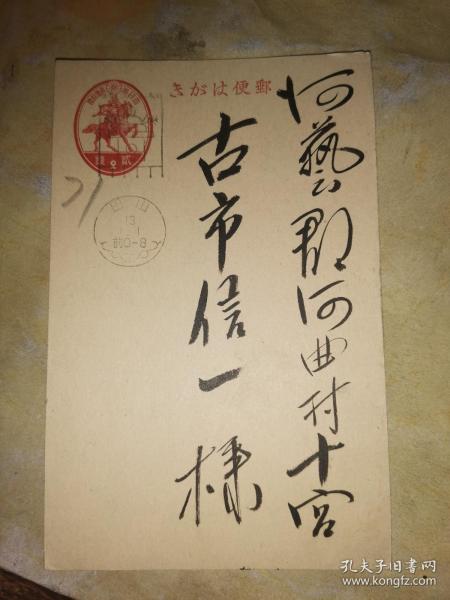 郵便はがき
河藝郡河曲村十宮
古市信一様
貳銭
山田
13
1.1
前0-8
21
孔夫子旧书网
www.kongfz.com